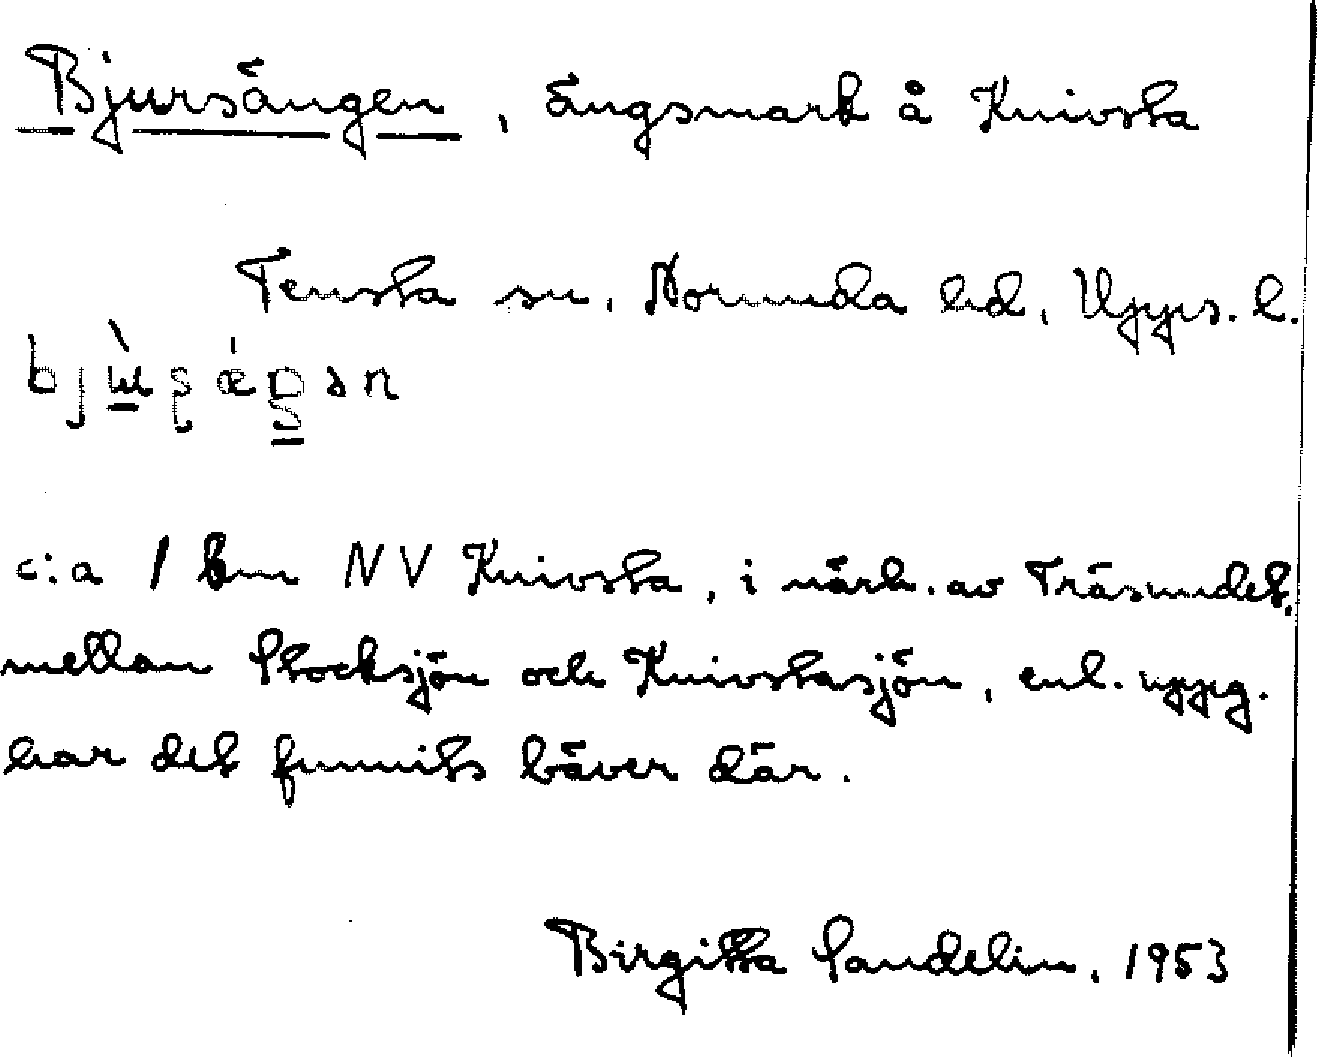 Bjursängen, ängsmark å Knivsta
Tensta sn. Norunda hd, Upps. l.
c:a 1 km NV Knivsta, i närh. av Träsundet,
mellan Stocksjön och Knivstasjön, enl. uppg.
har det funnits bäver där.
Birgitta Sandelin, 1953